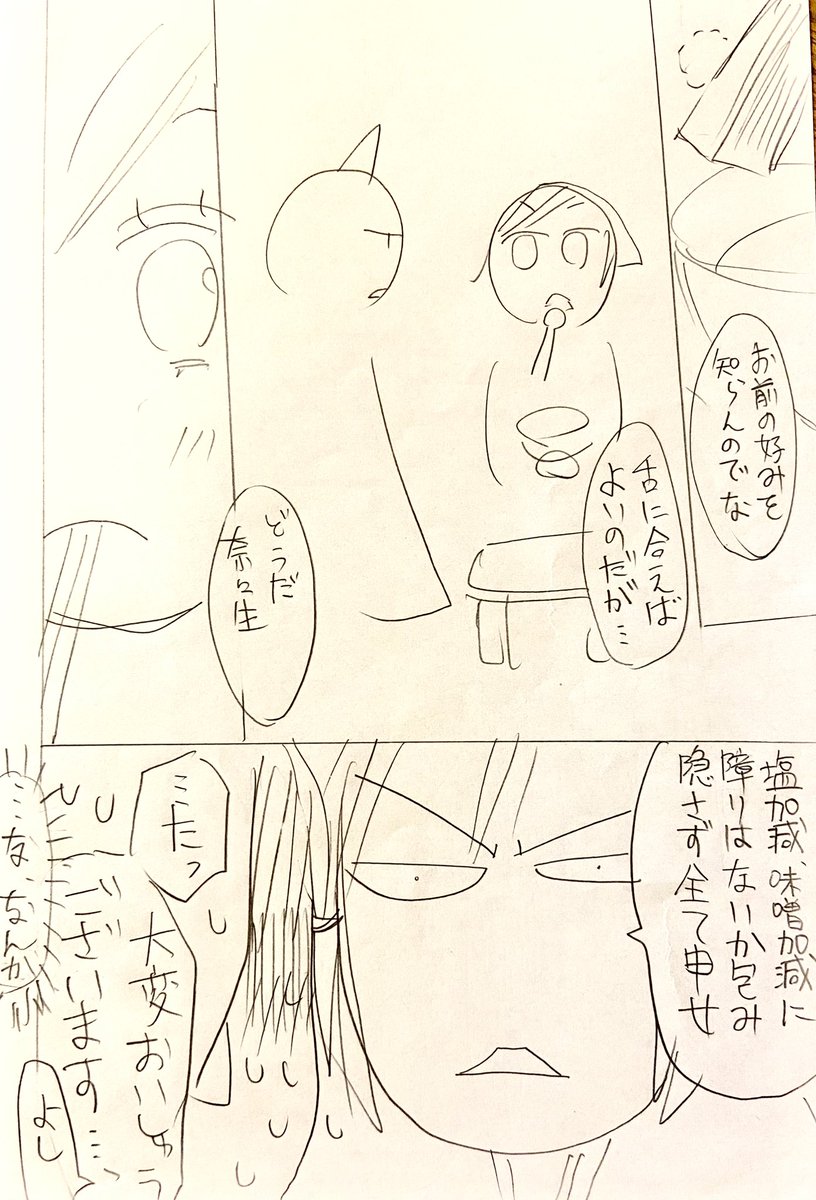 お前の好みを
知らんのでな
舌に合えば
よいのだが…
どうだ
奈々生
塩加減、味噌加減に
障りはないか包み
隠さず全て申せ
ミたっ
大変おいしゅう
ございます…
よし
…な、なんか